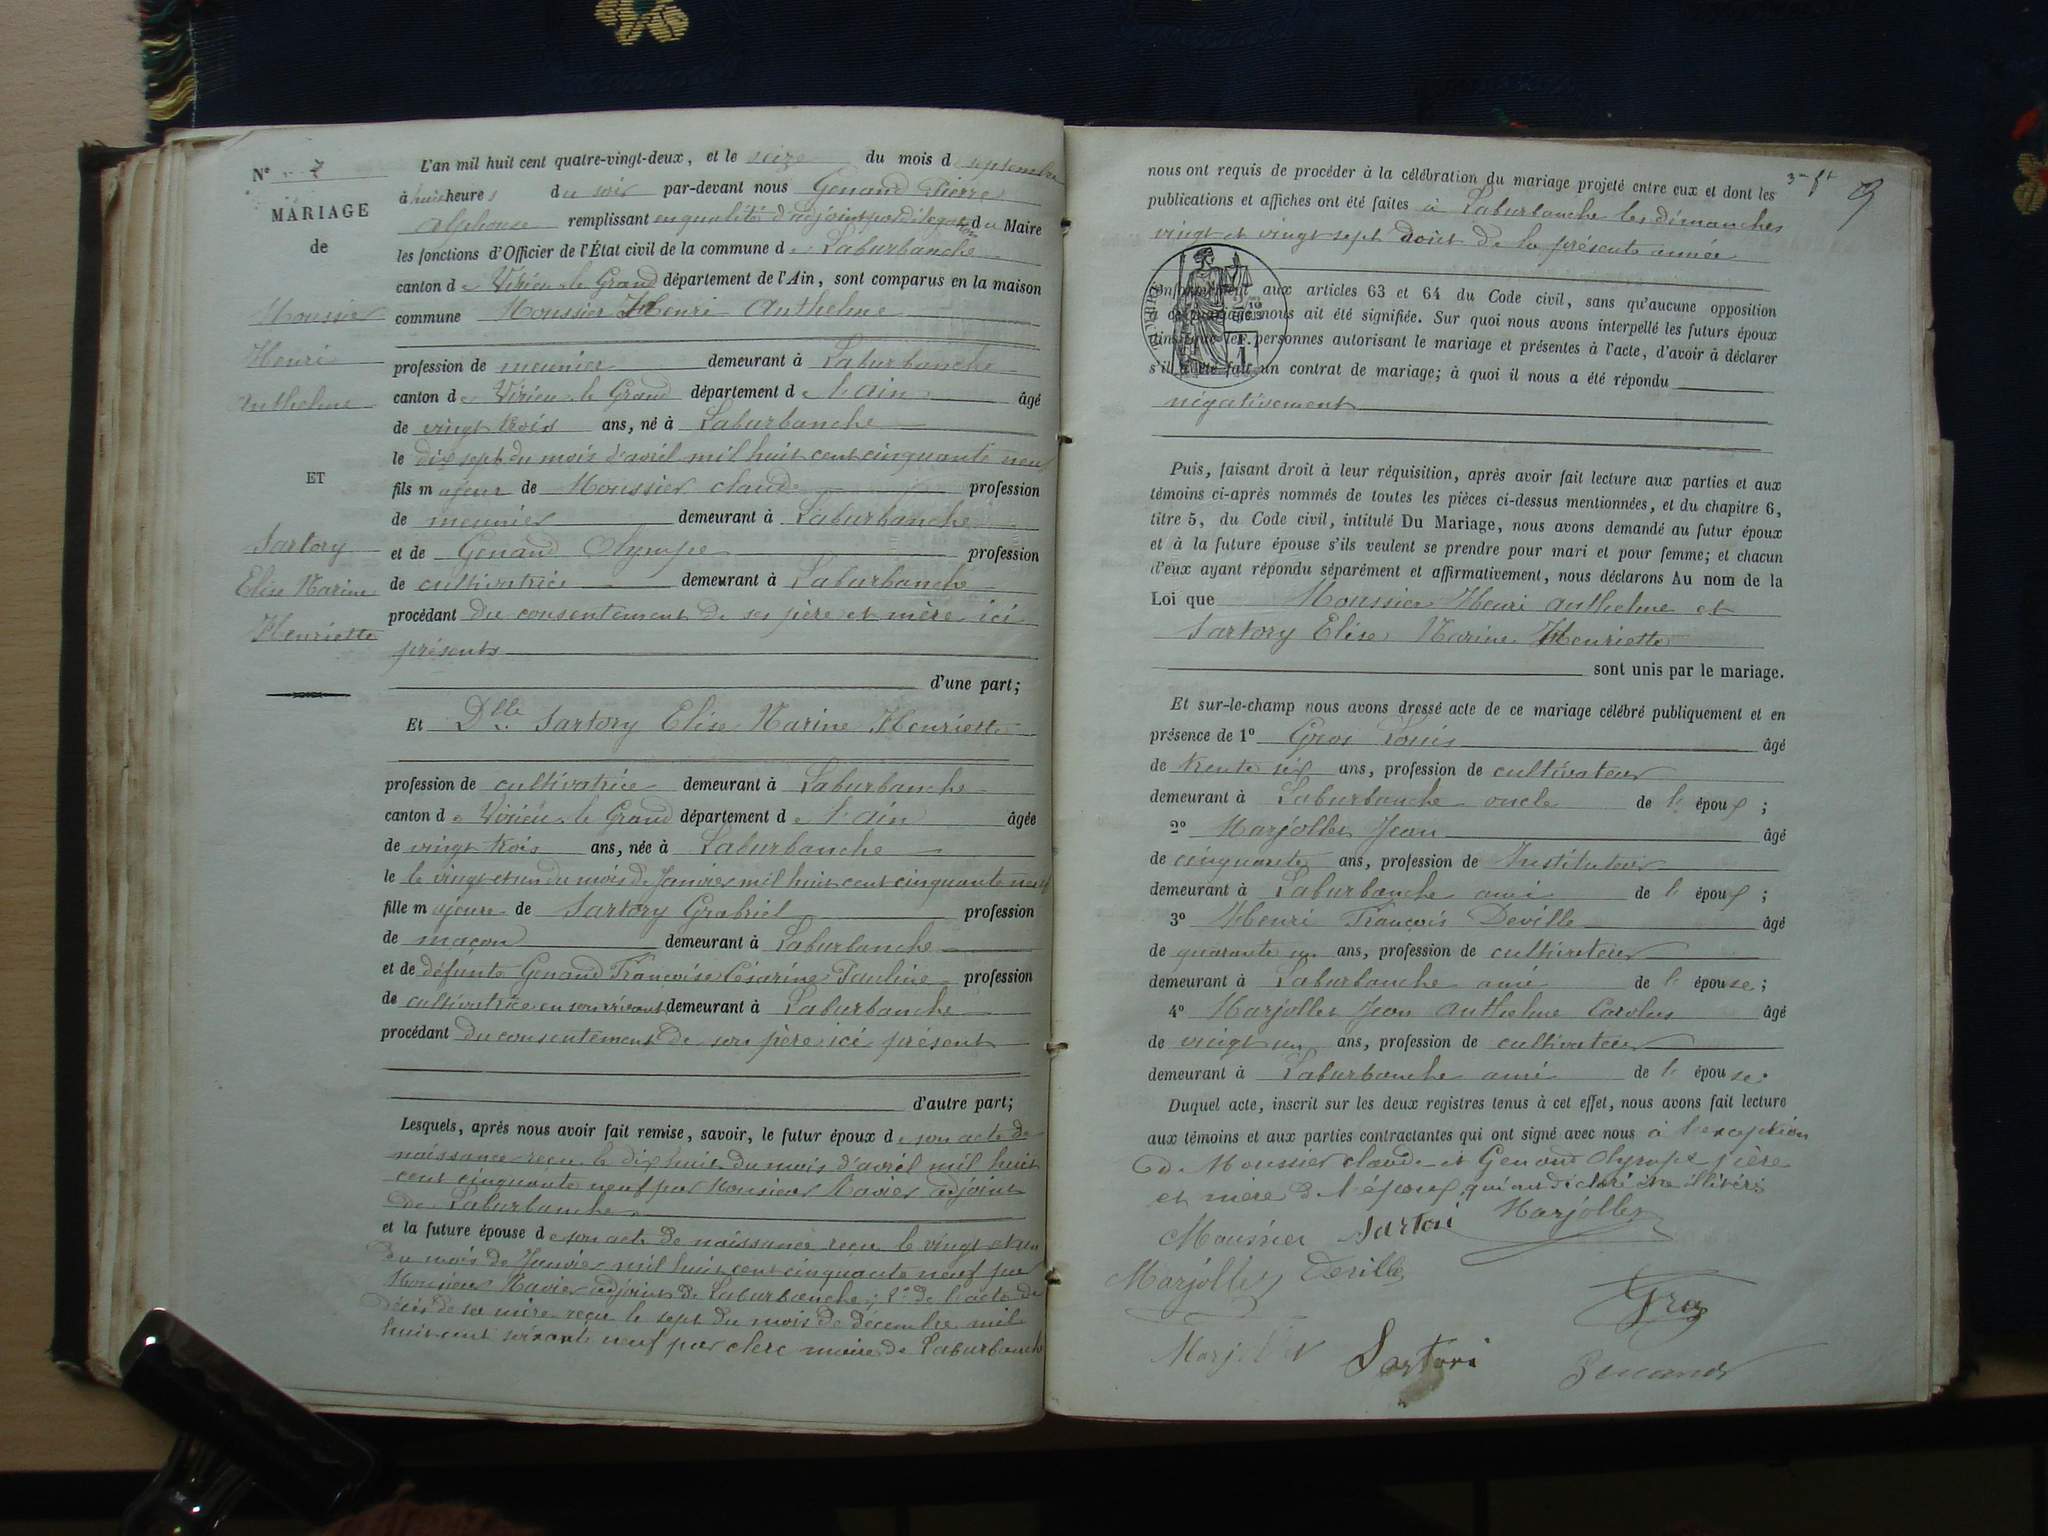 N° 7
MARIAGE
de
Moussier
Henri
Anthelme
ET
Sartory
Elise Marine
Henriette
L'an mil huit cent quatre-vingt-deux, et le seize du mois d septembre
à huit heures du soir par-devant nous Genand Pierre
Alphonse remplissant en qualité d'adjoint par délégation du Maire
les fonctions d'Officier de l'État civil de la commune de Laburbanche
canton de Virieu le Grand département de l'Ain, sont comparus en la maison
commune Moussier Henri Anthelme
profession de meunier demeurant à Laburbanche
canton de Virieu le Grand département de l'ain âgé
de vingt trois ans, né à Laburbanche
le dix sept du mois d'avril mil huit cent cinquante neuf
fils majeur de Moussier claude profession
de meunier demeurant à Laburbanche
et de Genand Olympe profession
de cultivatrice demeurant à Laburbanche
procédant du consentement de ses père et mère ici
présents
d'une part;
Et Dlle Sartory Elise Marine Henriette
profession de cultivatrice demeurant à Laburbanche
canton de Virieu le Grand département de l'ain âgée
de vingt trois ans, née à Laburbanche
le le vingt et un du mois de Janvier mil huit cent cinquante neuf
fille majeure de Sartory Grabriel profession
de maçon demeurant à Laburbanche
et de défunte Genand Françoise Césarine Pauline profession
de cultivatrice en son vivant demeurant à Laburbanche
procédant du consentement de son père ici présent
d'autre part;
Lesquels, après nous avoir fait remise, savoir, le futur époux de son acte de
naissance reçu le dix huit du mois d'avril mil huit
cent cinquante neuf par Monsieur Ravier adjoint
de Laburbanche
et la future épouse de son acte de naissance reçu le vingt et un
du mois de Janvier mil huit cent cinquante neuf par
Monsieur Ravier adjoint de Laburbanche; 2° de l'acte de
décès de sa mère reçu le sept du mois de décembre mil
huit cent soixante neuf par clerc maire de Laburbanche
3me ft 9
nous ont requis de procéder à la célébration du mariage projeté entre eux et dont les
publications et affiches ont été faites à Laburbanche les dimanches
vingt et vingt sept Août de la présente année
conformément aux articles 63 et 64 du Code civil, sans qu'aucune opposition
à ce mariage nous ait été signifiée. Sur quoi nous avons interpellé les futurs époux
ainsi que les personnes autorisant le mariage et présentes à l'acte, d'avoir à déclarer
s'il a été fait un contrat de mariage; à quoi il nous a été répondu
négativement
Puis, faisant droit à leur réquisition, après avoir fait lecture aux parties et aux
témoins ci-après nommés de toutes les pièces ci-dessus mentionnées, et du chapitre 6,
titre 5, du Code civil, intitulé Du Mariage, nous avons demandé au futur époux
et à la future épouse s'ils veulent se prendre pour mari et pour femme; et chacun
d'eux ayant répondu séparément et affirmativement, nous déclarons Au nom de la
Loi que Moussier Henri Anthelme et
Sartory Elise Marine Henriette
sont unis par le mariage.
Et sur-le-champ nous avons dressé acte de ce mariage célébré publiquement et en
présence de 1° Gros Louis âgé
de trente six ans, profession de cultivateur
demeurant à Laburbanche oncle de l'époux;
2° Marjollet Jean âgé
de cinquante ans, profession de Instituteur
demeurant à Laburbanche ami de l'époux;
3° Henri François Deville âgé
de quarante un ans, profession de cultivateur
demeurant à Laburbanche ami de l'épouse;
4° Marjollet Jean Anthelme Carolus âgé
de vingt un ans, profession de cultivateur
demeurant à Laburbanche ami de l'épouse.
Duquel acte, inscrit sur les deux registres tenus à cet effet, nous avons fait lecture
aux témoins et aux parties contractantes qui ont signé avec nous à l'exception
de Moussier claude et Genand Olympe père
et mère de l'époux qui ont déclaré être illitérés
Moussier Sartori Marjollet
Marjollet Deville
Gros
Marjollet Sartori Genand